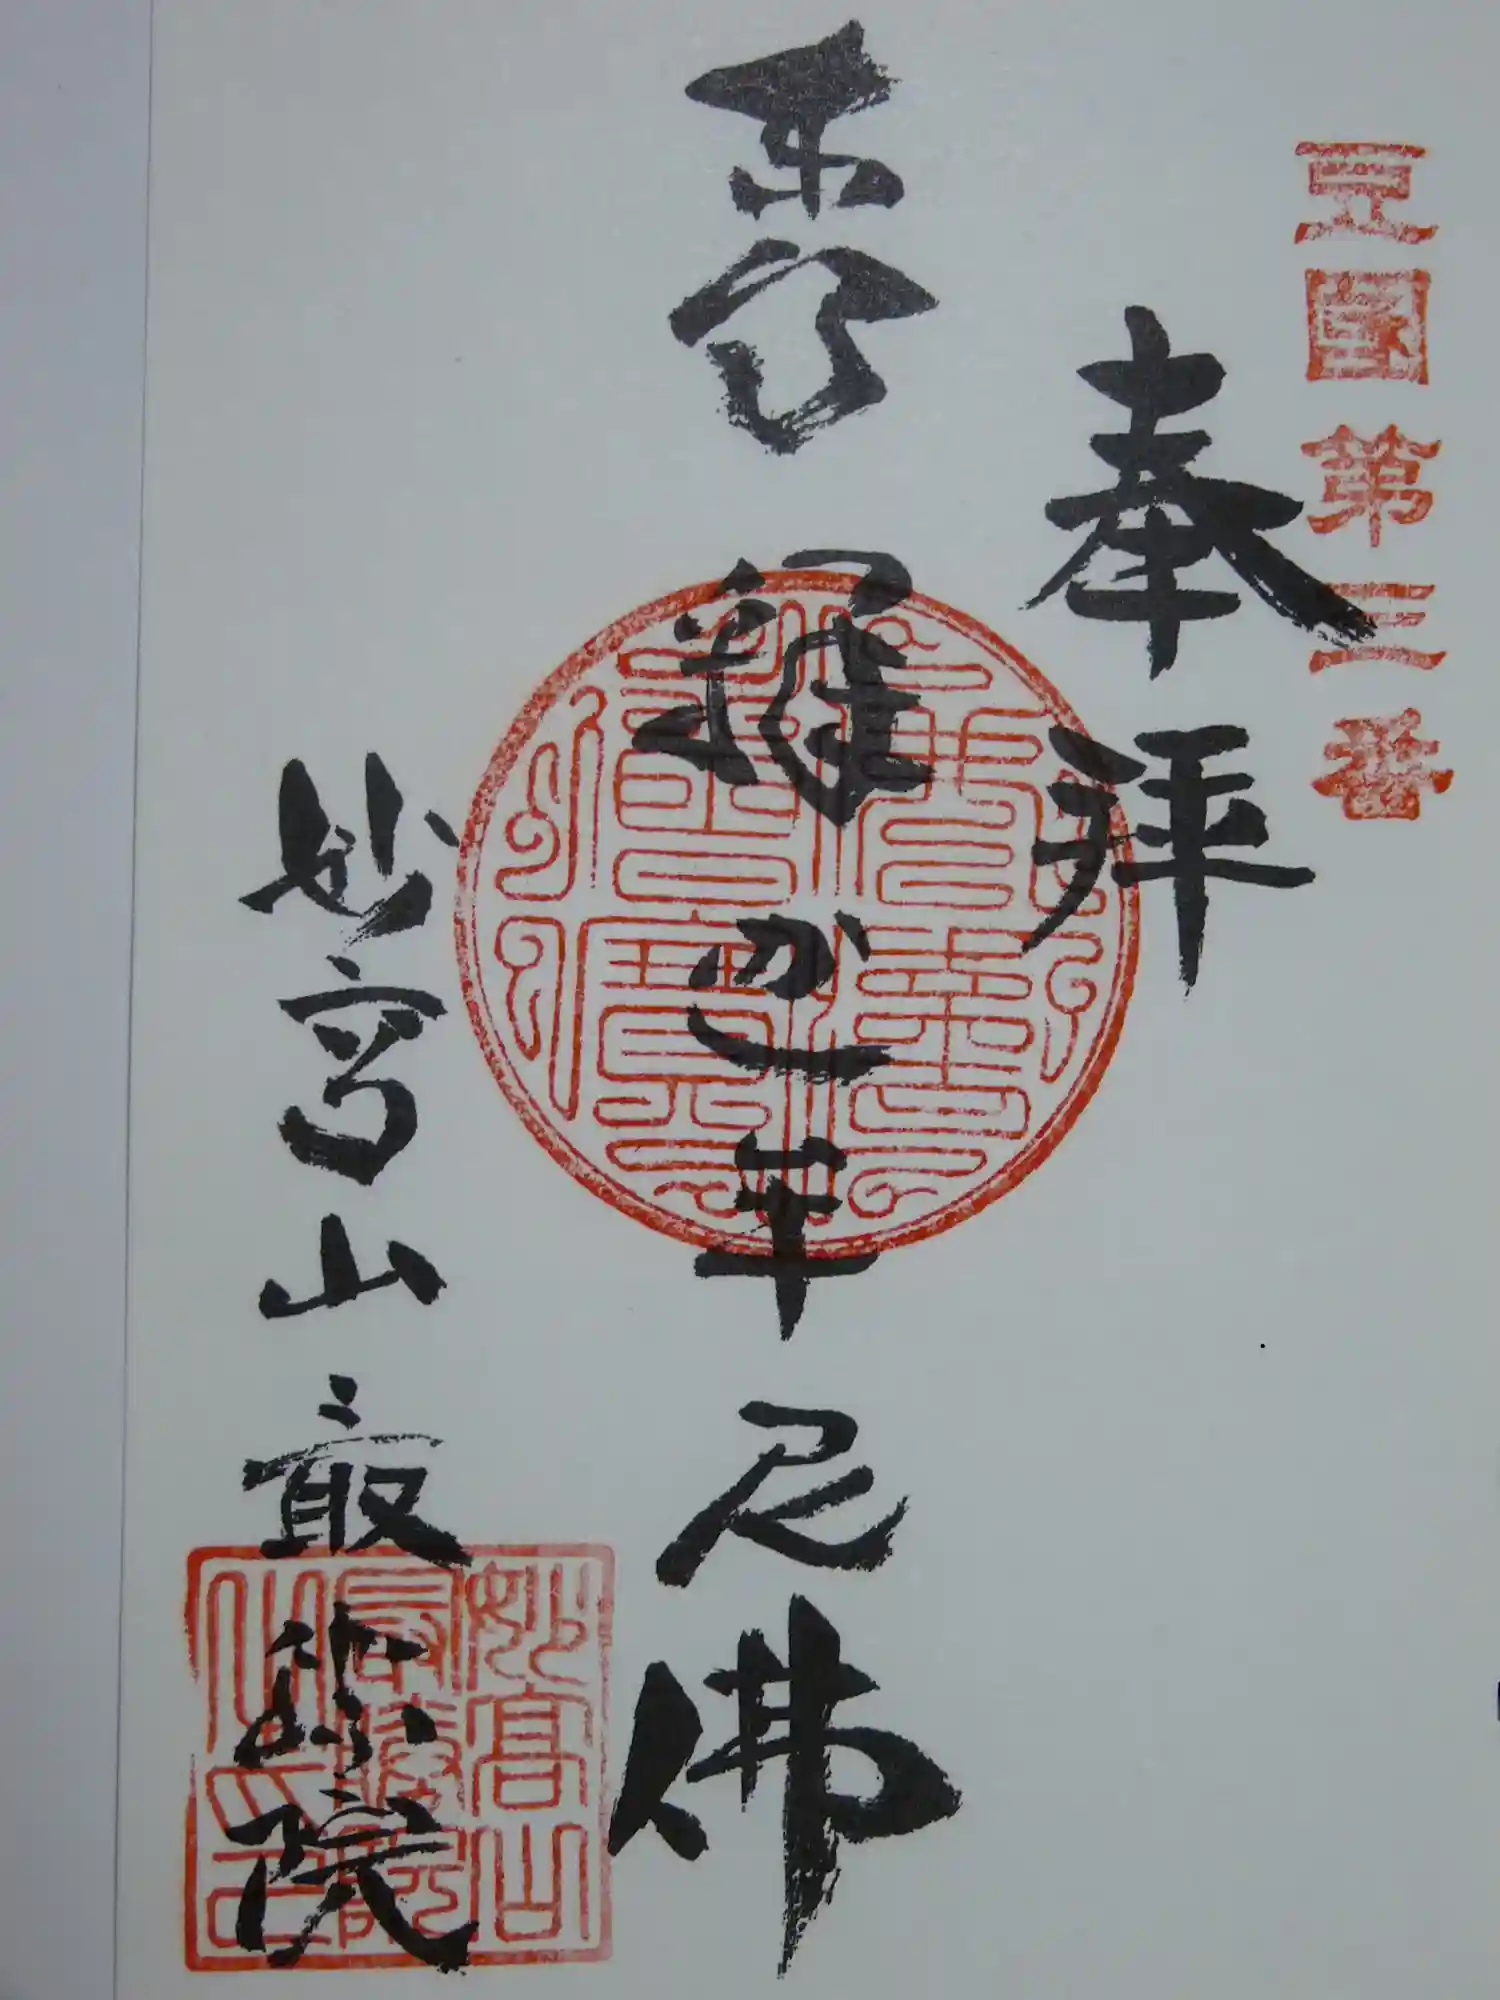 豆國第三番
奉拝
釋迦牟尼佛
妙高山最勝院
妙高山
最勝院
之印